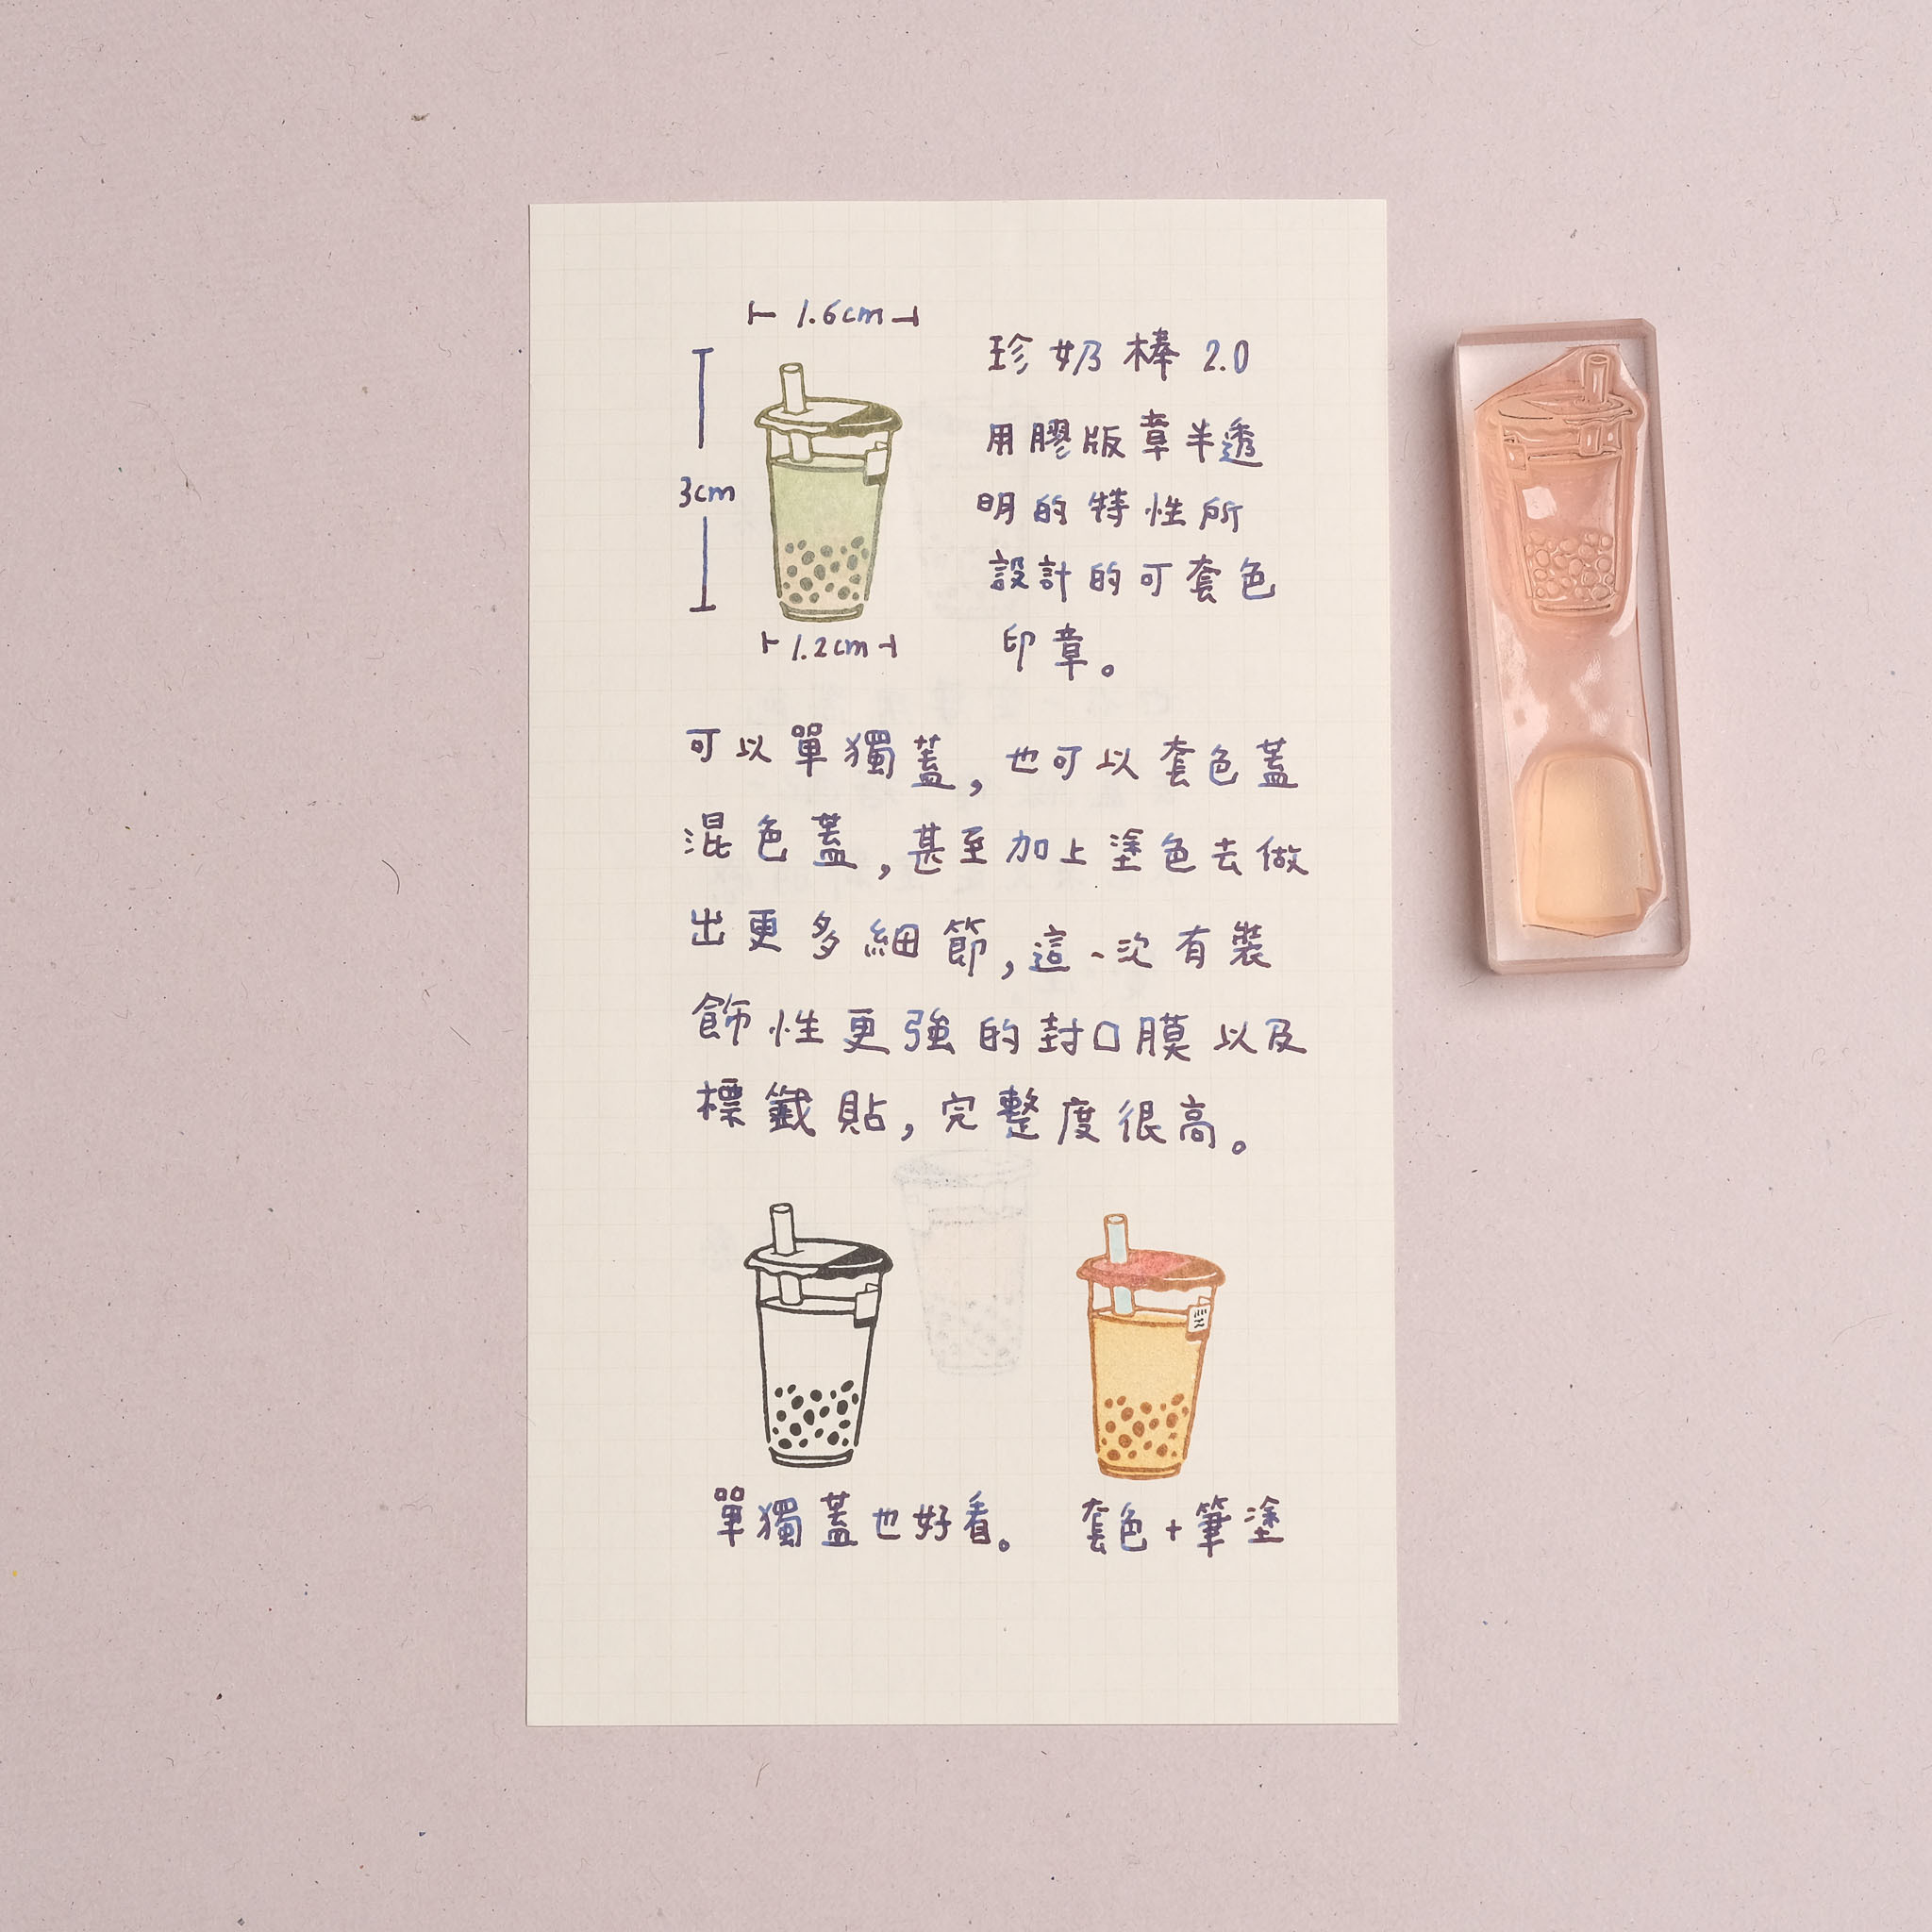 1.6cm
3cm
1.2cm
珍奶棒 2.0
用膠版章半透
明的特性所
設計的可套色
印章。
可以單獨蓋,也可以套色蓋
混色蓋,甚至加上塗色去做
出更多細節,這一次有裝
飾性更強的封口膜以及
標籤貼,完整度很高。
單獨蓋也好看。
套色+筆塗